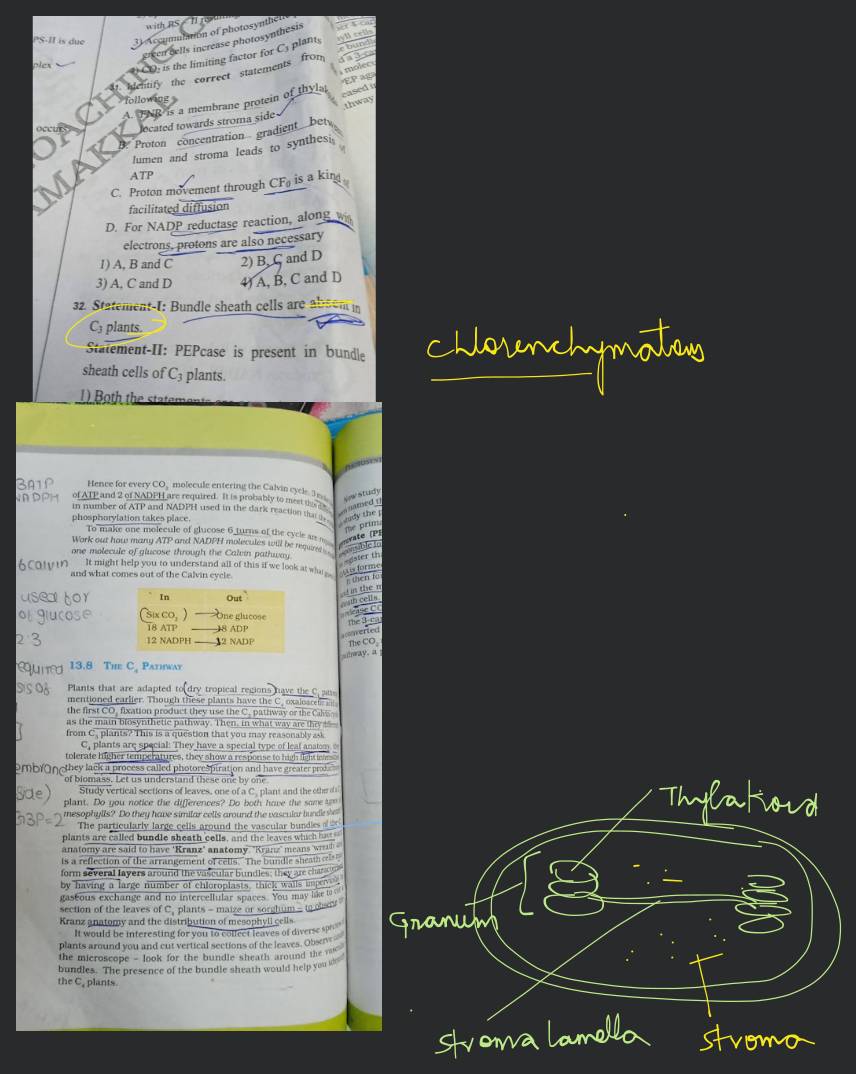 with PS - II
3) Accumulation of photosynthetic
green cells increase photosynthesis
4) CO₂ is the limiting factor for C₃ plants
31. Identify the correct statements from
following
A. FNR is a membrane protein of
located towards stroma side
B. Proton concentration gradient
lumen and stroma leads to synthesis of
ATP
C. Proton movement through CF₀ is a kind of
facilitated diffusion
D. For NADP reductase reaction, along with
electrons, protons are also necessary
1) A, B and C 2) B, C and D
3) A, C and D 4) A, B, C and D
32. Statement-I: Bundle sheath cells are absent in
C₃ plants.
Statement-II: PEPcase is present in bundle
sheath cells of C₃ plants.
1) Both the
PS-II is due
plex
occurs
OACHING
AMAKKAL
chlorenchymatous
3ATP
NADPH
6 calvin
used for
of glucose
2.3
equired
sis of
embrane
side)
G3P=2
Hence for every CO₂ molecule entering the Calvin cycle, 3
of ATP and 2 of NADPH are required. It is probably to meet this
in number of ATP and NADPH used in the dark reaction that the
phosphorylation takes place.
To make one molecule of glucose 6 turns of the cycle are
Work out how many ATP and NADPH molecules will be required to
one molecule of glucose through the Calvin pathway.
It might help you to understand all of this if we look at what
and what comes out of the Calvin cycle.
In Out
Six CO₂ One glucose
18 ATP 18 ADP
12 NADPH 12 NADP
13.8 THE C₄ PATHWAY
Plants that are adapted to dry tropical regions have the C₄
mentioned earlier. Though these plants have the C₄ oxaloacetic acid
the first CO₂ fixation product they use the C₃ pathway or the Calvin
as the main biosynthetic pathway. Then, in what way are they
from C₃ plants? This is a question that you may reasonably ask.
C₄ plants are special: They have a special type of leaf anatomy,
tolerate higher temperatures, they show a response to high light
they lack a process called photorespiration and have greater
of biomass. Let us understand these one by one.
Study vertical sections of leaves, one of a C₃ plant and the other of a
plant. Do you notice the differences? Do both have the same types
mesophylls? Do they have similar cells around the vascular bundle
The particularly large cells around the vascular bundles of the
plants are called bundle sheath cells, and the leaves which have
anatomy are said to have 'Kranz' anatomy. 'Kranz' means 'wreath'
is a reflection of the arrangement of cells. The bundle sheath cells
form several layers around the vascular bundles; they are
by having a large number of chloroplasts, thick walls impervious
gaseous exchange and no intercellular spaces. You may like to
section of the leaves of C₄ plants – maize or sorghum – to observe
Kranz anatomy and the distribution of mesophyll cells.
It would be interesting for you to collect leaves of diverse species
plants around you and cut vertical sections of the leaves. Observe
the microscope – look for the bundle sheath around the
bundles. The presence of the bundle sheath would help you
the C₄ plants.
Thylakoid
Granum
Stroma lamella
Stroma